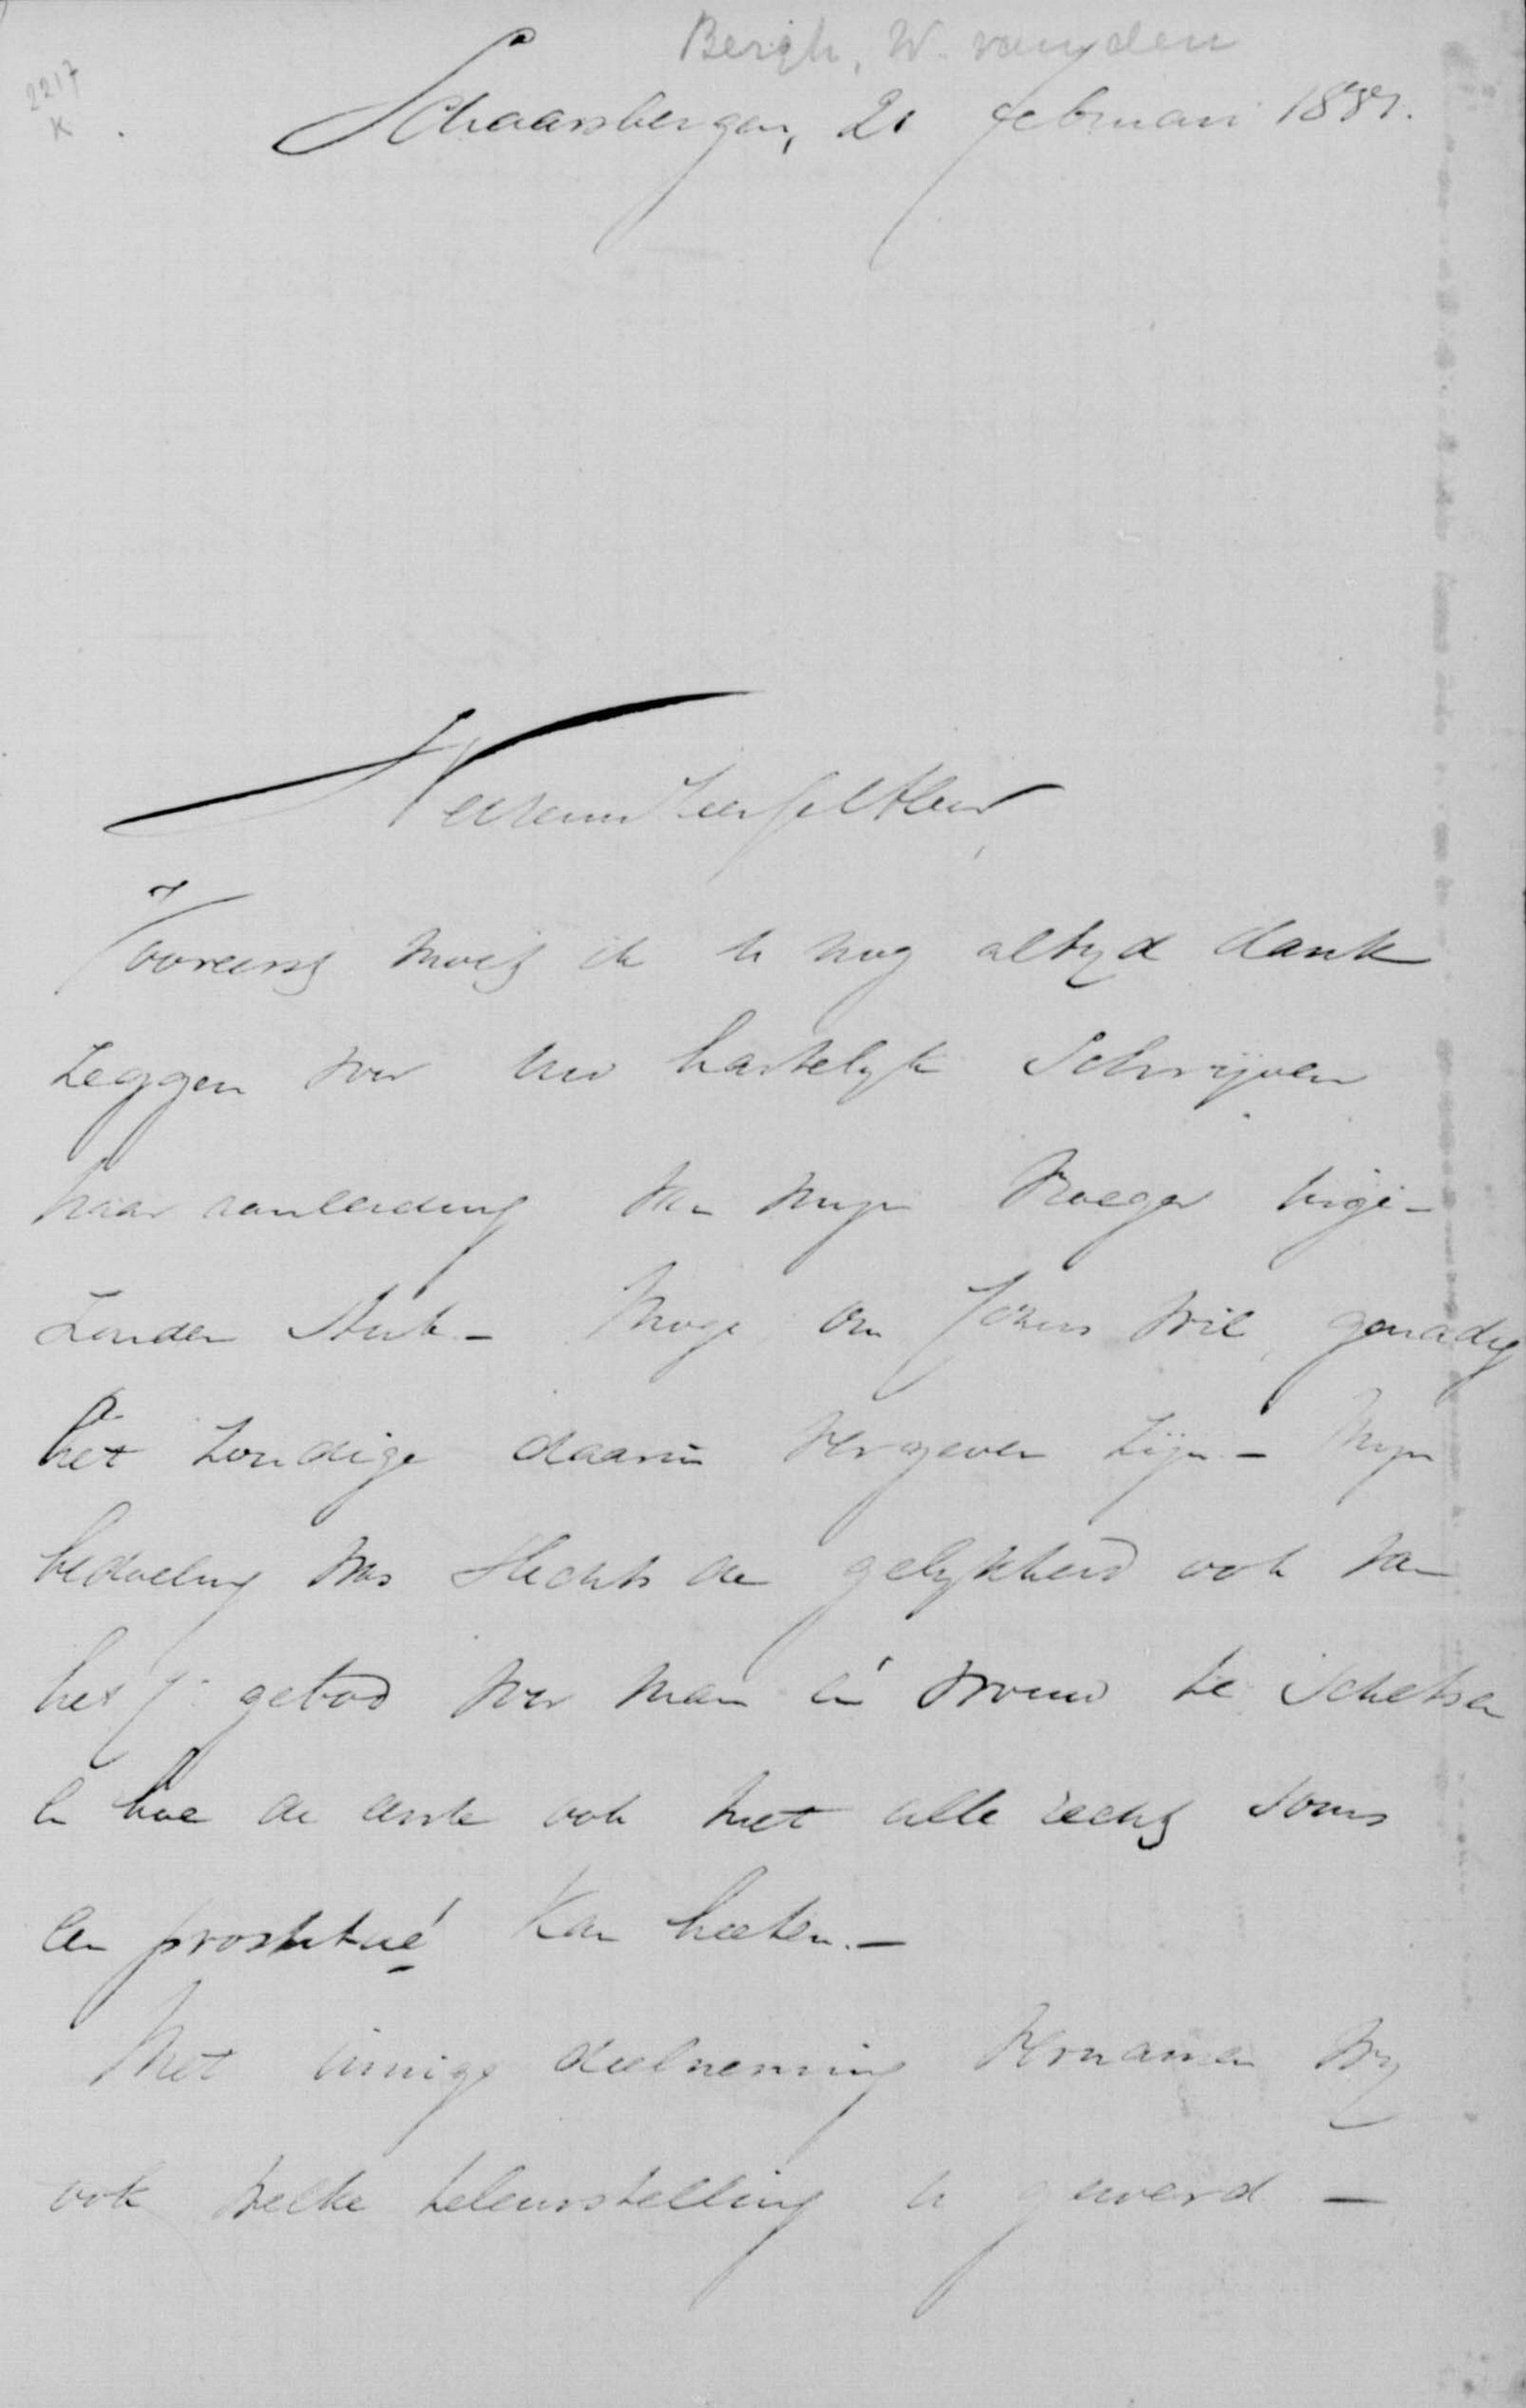 Bergh, W. van den
2217
K
Schaarsbergen, 21 februari 1887.
Vooreerst moet ik u nog altyd dank
zeggen voor uw hartelyk schrijven
naar aanleiding van mijn vroeger inge-
zonden stuk - Moge om Jezus wil, genadig
het zondige daarin vergeven zijn - Mijn
bedoeling was slechts de gelykheid ook van
het 7e gebod voor man én vrouw te schetsen
en hoe de eerste ook met alle recht soms
een prostitué kan heeten. -
Met innige deelneming vernamen wy
ook welke teleurstelling u gewerd -